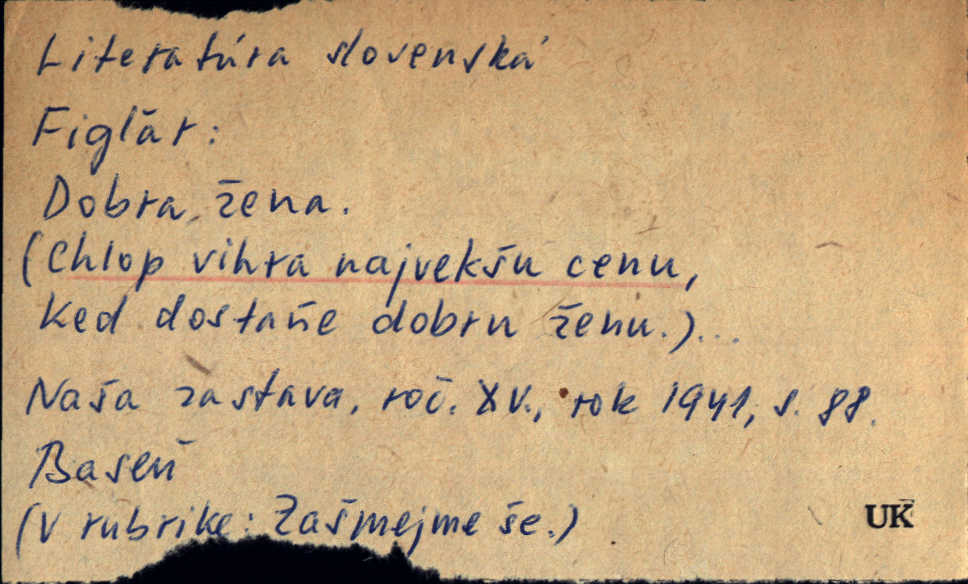 Literatúra slovenská
Figlár:
Dobra žena.
(Chlop vihra najvekšu cenu,
ked dostaňe dobru ženu.)...
Naša zastava, roč. XV., rok 1941, s. 88.
Baseň
(V rubrike: Zašmejme še.)
UK